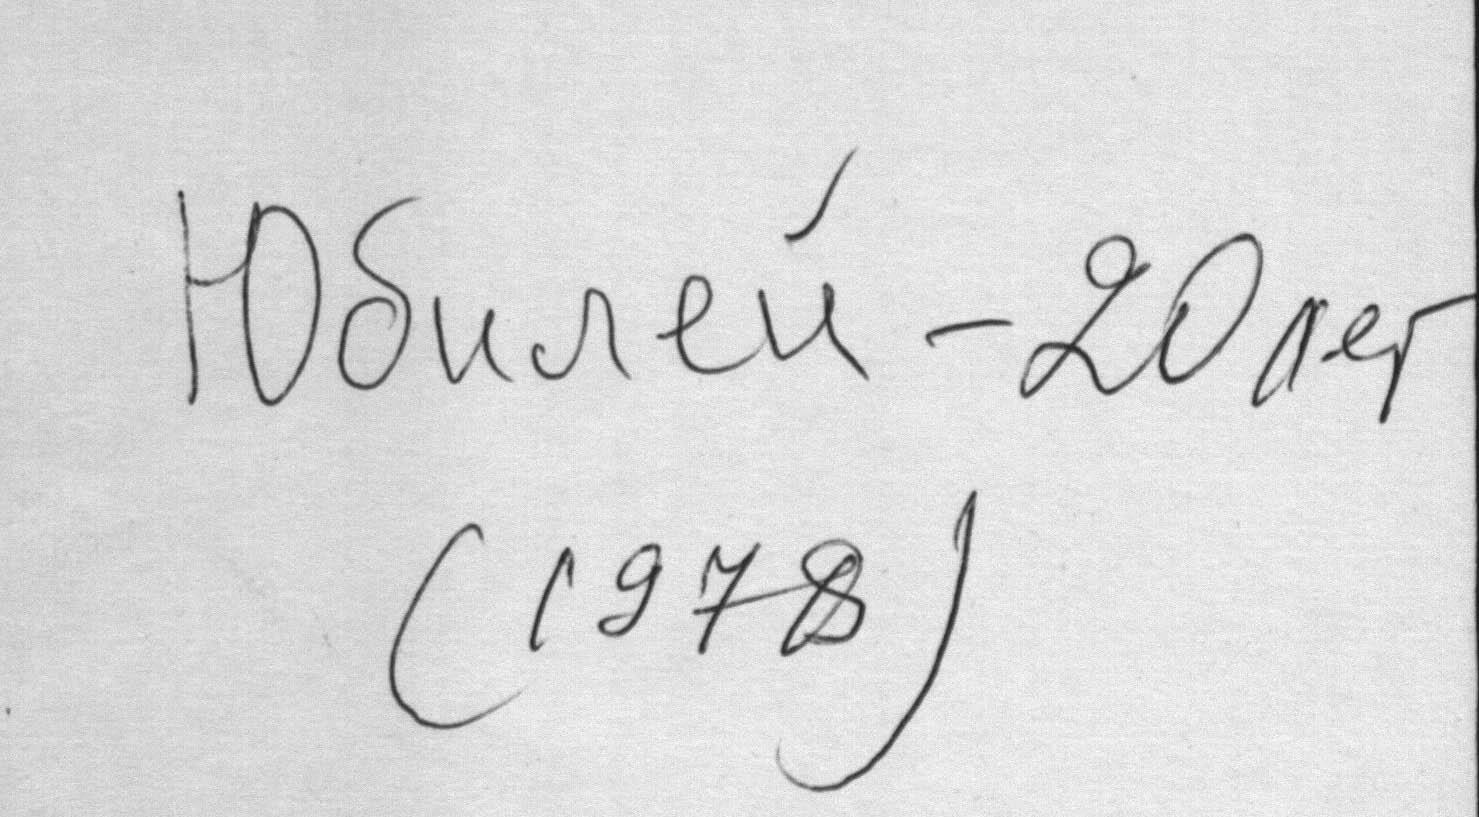 Юбилей - 20 лет
(1978)